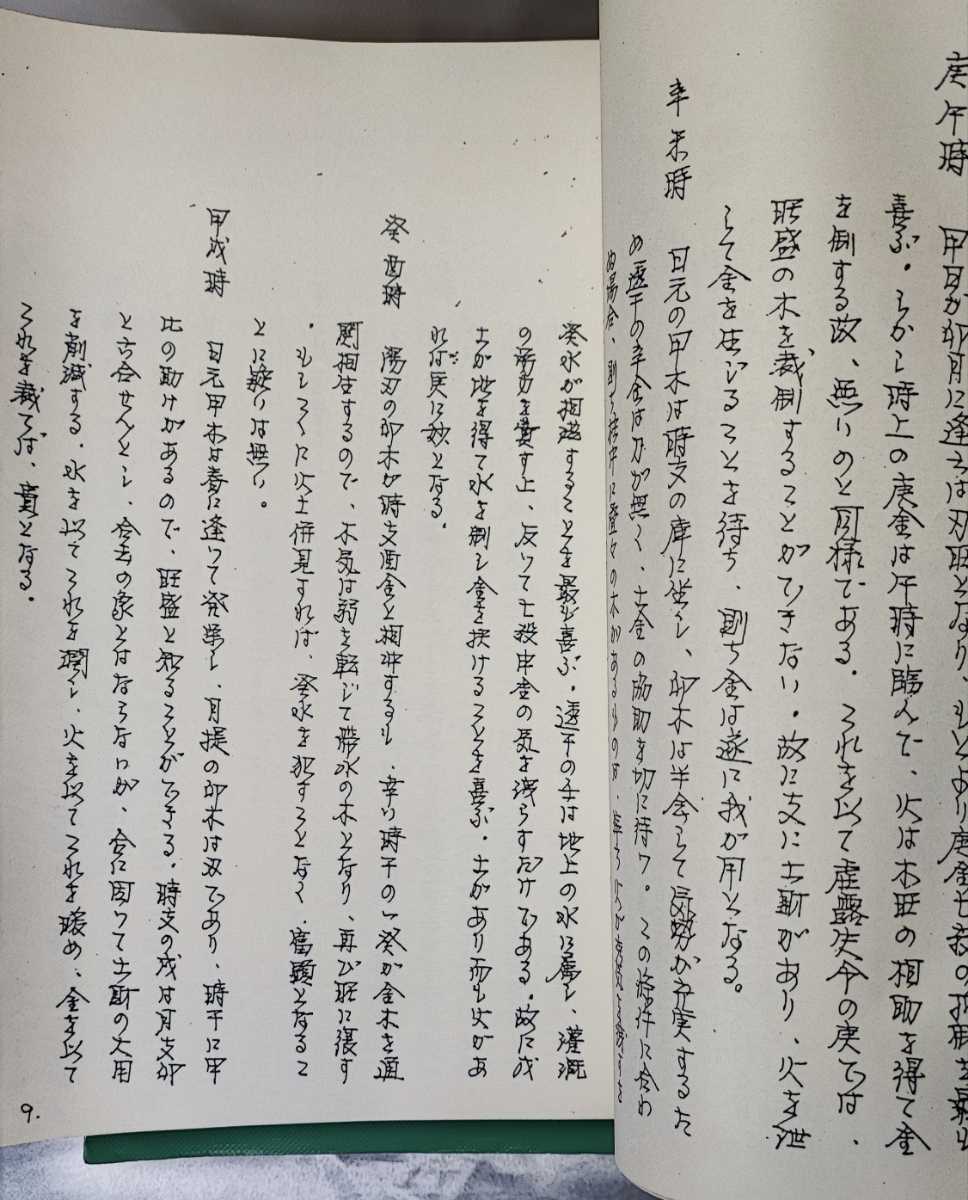 庚午時　甲日が卯月に逢えば刃旺となり、もとより庚金七殺の
喜ぶ。しかし時上の庚金は午時に臨んで、火は木旺の相助を得て金
を倒する故、無いのと同様である。これを以て虚露失令の庚では、
旺盛の木を裁倒することができない。故に支に土配があり、火を洩
して金を生じることを待ち、則ち金は遂に我が用となる。
辛未時　日元の甲木は時支の庫に坐し、卯木は半会して気勢が充実するた
め透干の辛金は力が無く、土金の協助を切に待つ。この条件に合わ
ぬ場合、則ち柱中に
癸水が相滋することを最も喜ぶ。透干の壬は地上の水に属し、灌漑
の労力を費す上、反って七殺申金の気を洩らすだけである。故に戊
土が地を得て水を制し金を扶けることを喜ぶ。土があり而も火があ
れば更に妙となる。
癸酉時　陽刃の卯木が時支酉金と相冲するも、幸い時干の一癸が金木を通
関相生するので、木気は弱を転じて帯水の木となり、再び旺に復す
。もしくに火土併見すれば、癸水を犯すことなく、富顕となるこ
とに疑いは無い。
甲戌時　日元甲木は春に逢って発栄し、月提の卯木は刃であり、時干に甲
比の助けがあるので、旺盛と知ることができる。時支の戌は月支卯
と六合せんとし、合去の象とはならないが、合に因って土配の大用
を削減する。水を以てこれを潤し、火を以てこれを暖め、金を以て
これを裁てば、貴となる。
9.